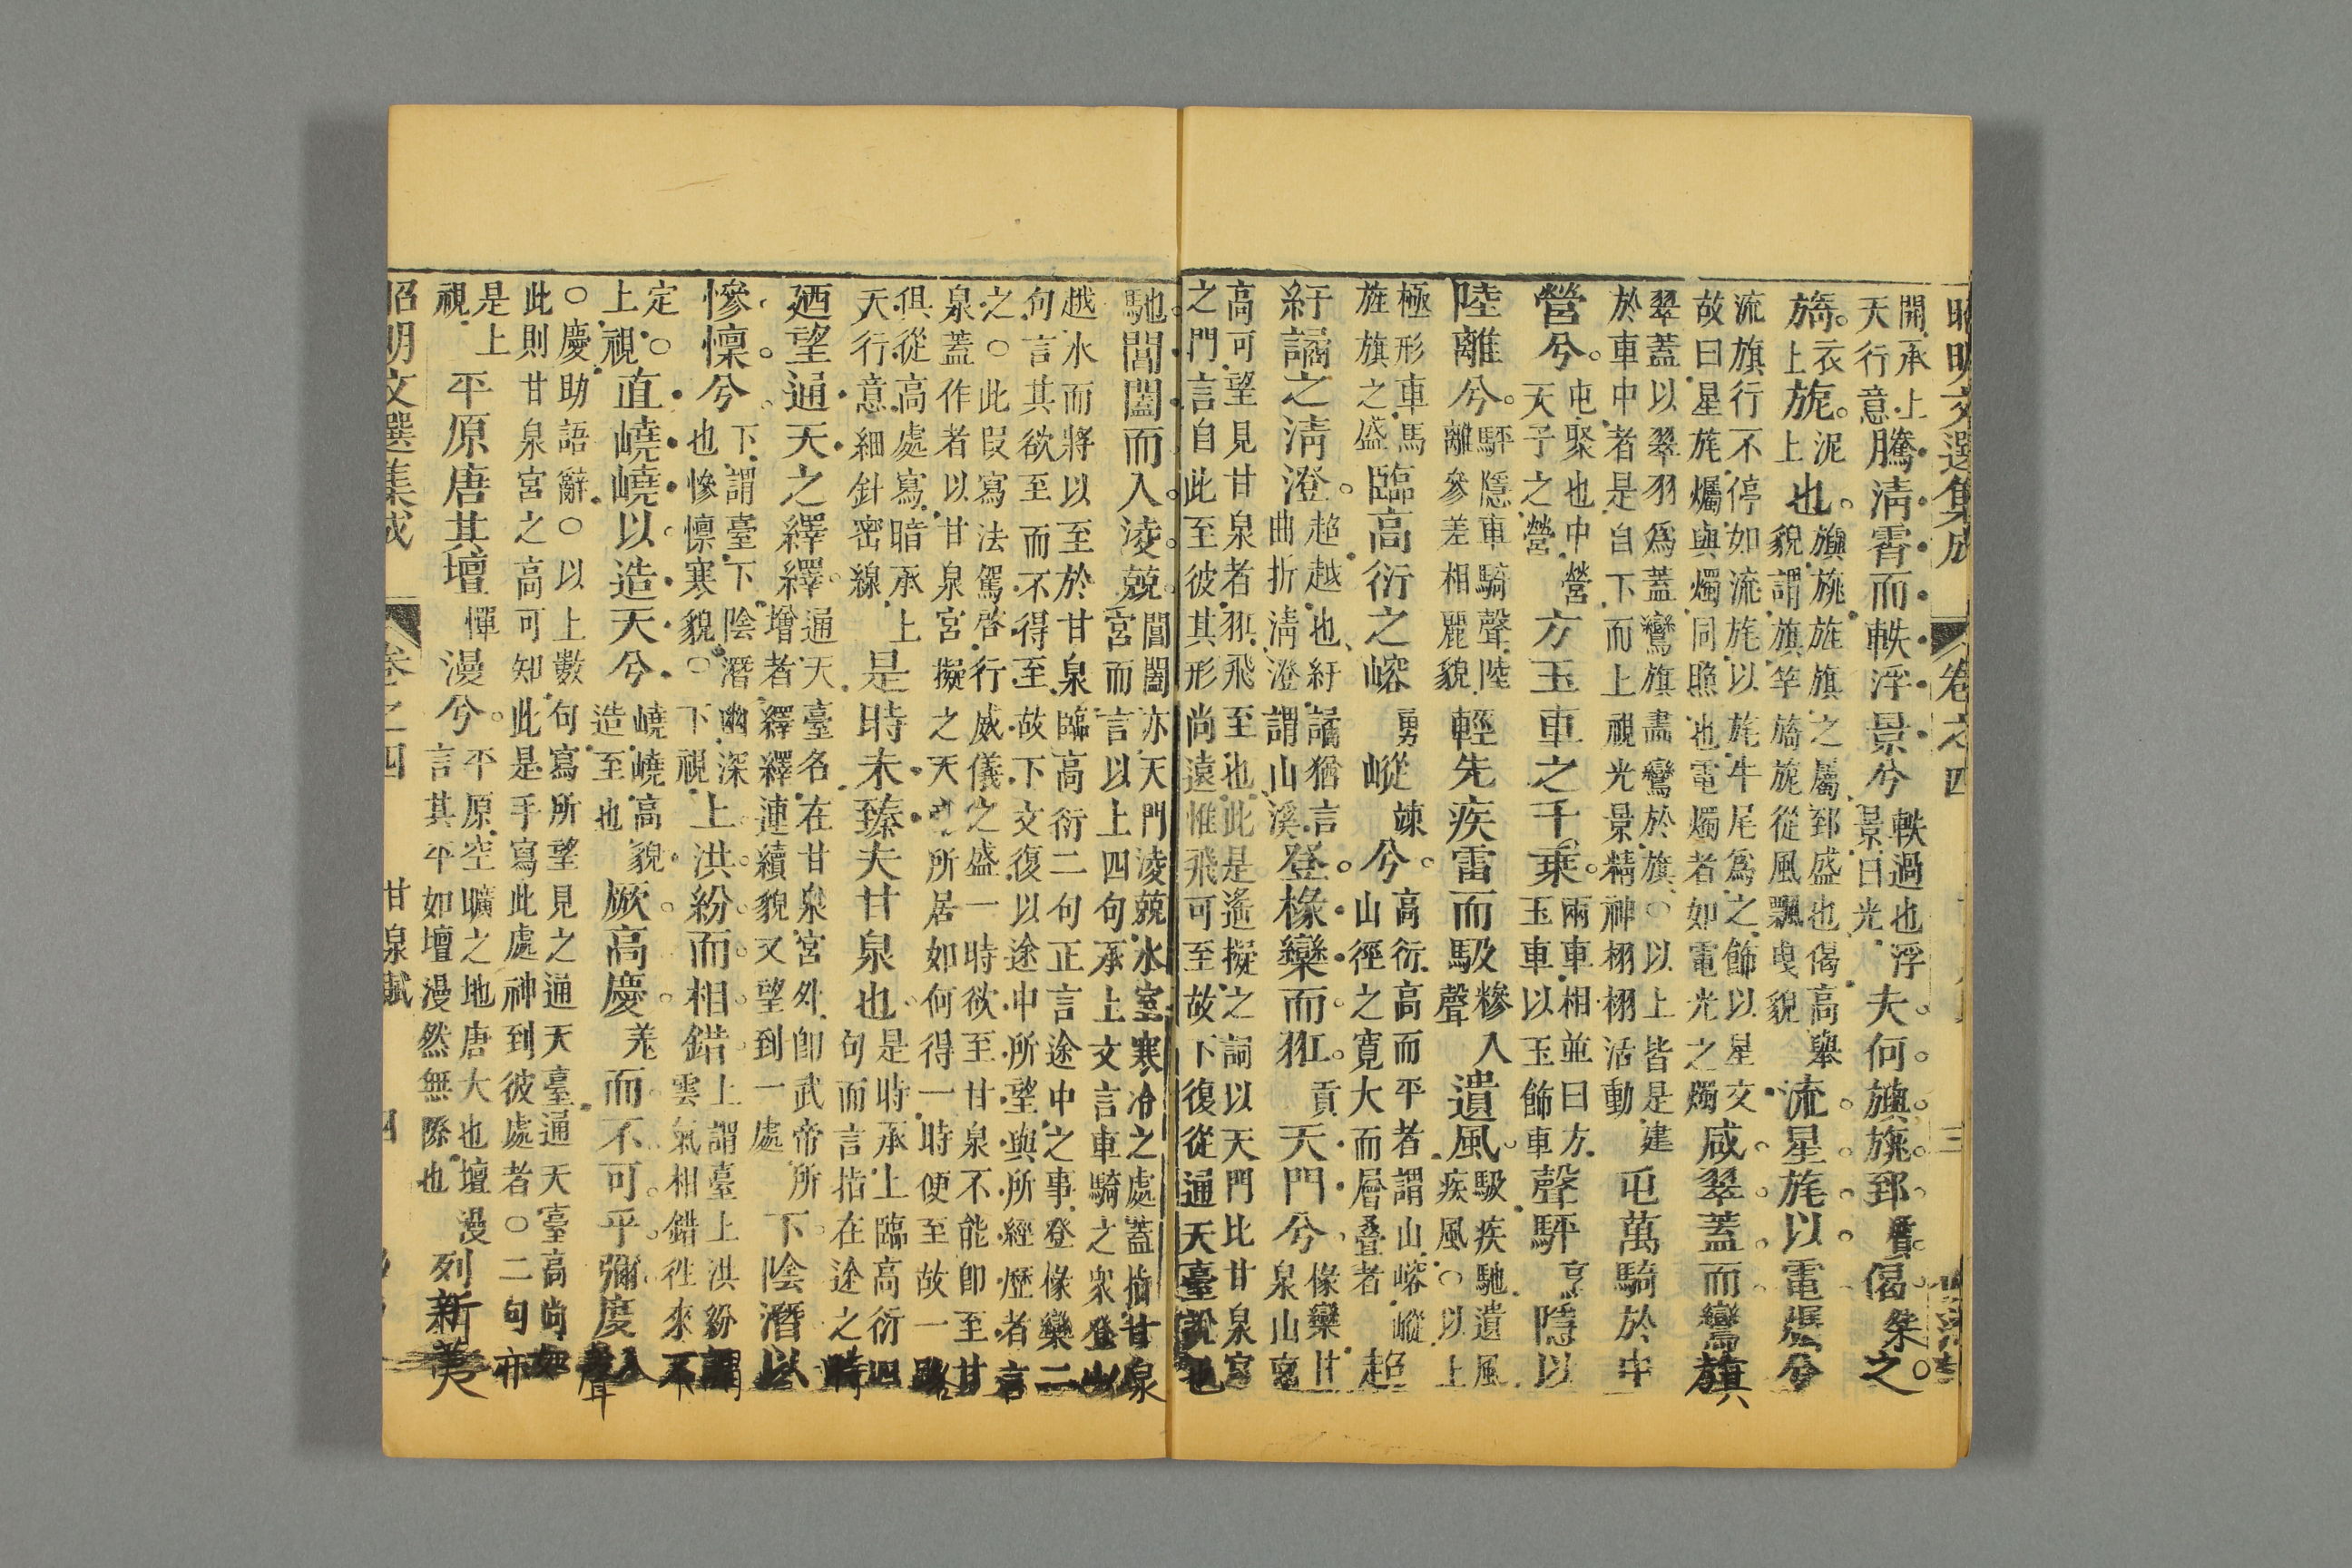 昭明文選集成 卷之四 三
開承上天行意騰清霄而軼浮景兮軼過也浮景日光夫何旟旐郅質偈桀之
旖衣上旎泥上也旟旐旌旗之屬郅盛也偈高舉貌謂旗竿旖旎從風飄曳貌流星旄以電爥兮
流旗行不停如流旄以旄牛尾爲之飾以星文故曰星旄爥與燭同照也電燭者如電光之燭咸翠蓋而鸞旗
翠蓋以翠羽爲蓋鸞旗畵鸞於旗○以上皆是建於車中者是自下而上視光景精神栩栩活動屯萬騎於中
營兮屯聚也中營天子之營方玉車之千乘兩車相並曰方玉車以玉飾車聲駍亨隱以
陸離兮駍隱車騎聲陸離參差相麗貌輕先疾雷而馺糝入聲遺風馺疾馳遺風疾風○以上
極形車馬旌旗之盛臨高衍之嵱勇嵷竦兮高衍高而平者謂山嵱嵷山徑之寬大而層叠者超
紆譎之淸澄超越也紆譎猶言曲折淸澄謂山溪登椽欒而羾貢天門兮椽欒甘泉山
高可望見甘泉者羾飛至也此是遙擬之詞以天門比甘泉宮之門言自此至彼其形尚遠惟飛可至故下復從通天臺說也
馳閶闔而入凌兢閶闔亦天門凌兢水室寒冷之處蓋指甘泉宮而言以上四句承上文言車騎之衆登山
越水而將以至於甘泉臨高衍二句正言途中之事登椽欒二句言其欲至而不得至故下文復以途中所望與所經歷者言
之○此叚寫法駕啓行威儀之盛一時欲至甘泉不能卽至甘泉蓋作者以甘泉宮擬之天所居如何得一時便至故一路
俱從高處寫暗承上天行意細針密線是時未臻夫甘泉也是時承上臨高衍四句而言指在途之時
廼望通天之繹繹通天臺名在甘泉宮外卽武帝所增者繹繹連續貌又望到一處下陰潛以
慘懍兮下謂臺下陰潛幽深也慘懍寒貌○下視上洪紛而相錯上謂臺上洪紛謂雲氣相錯徃來不
定○上視直嶢嶢以造天兮嶢嶢高貌造至也厥高慶羌而不可乎彌度入聲
○慶助語辭○以上數句寫所望見之通天臺通天臺高尚如此則甘泉宮之高可知此是手寫此處神到彼處者○二句亦
是上視平原唐其壇憚漫兮平原空曠之地唐大也壇漫言其平如壇漫然無際也列新荑
昭明文選集成 卷之四 甘泉賦 四